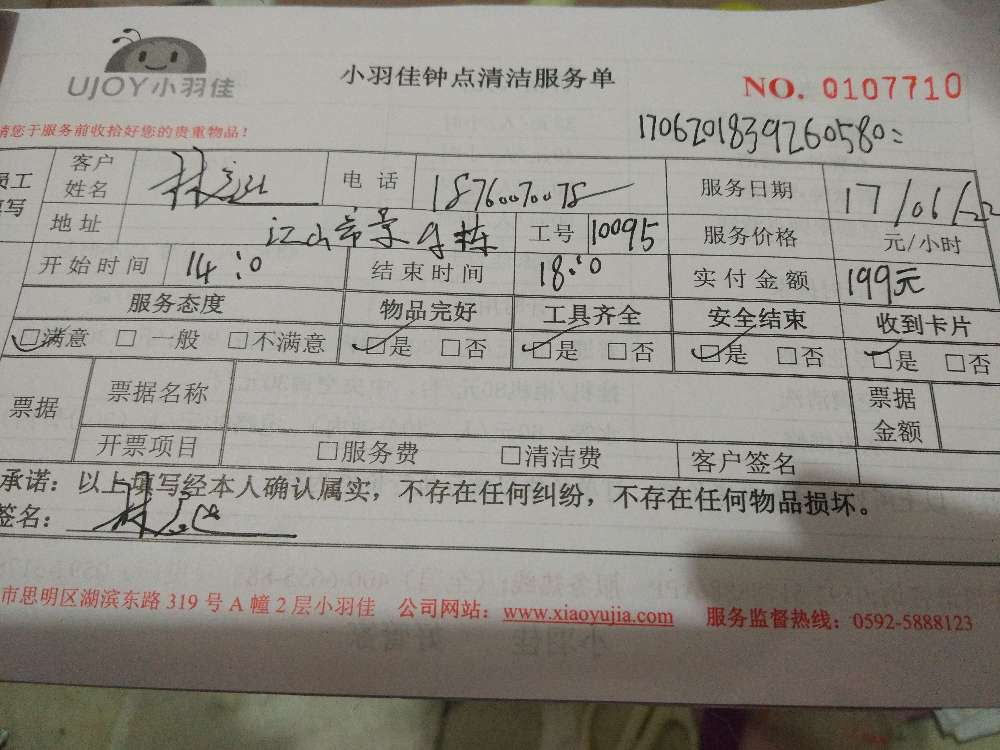 UJOY小羽佳
小羽佳钟点清洁服务单
NO. 0107710
请您于服务前收拾好您的贵重物品！
1706201839260580
员工填写
客户姓名 林 电话 18760070078 服务日期 17/06/22
地址 江山帝景 栋 工号 10095 服务价格 元/小时
开始时间 14:0 结束时间 18:0 实付金额 199元
服务态度 物品完好 工具齐全 安全结束 收到卡片
□满意 □一般 □不满意 □是 □否 □是 □否 □是 □否 □是 □否
票据 票据名称 票据金额
开票项目 □服务费 □清洁费 客户签名
承诺：以上填写经本人确认属实，不存在任何纠纷，不存在任何物品损坏。
签名：林
市思明区湖滨东路 319 号 A 幢 2 层小羽佳 公司网站：www.xiaoyujia.com 服务监督热线：0592-5888123